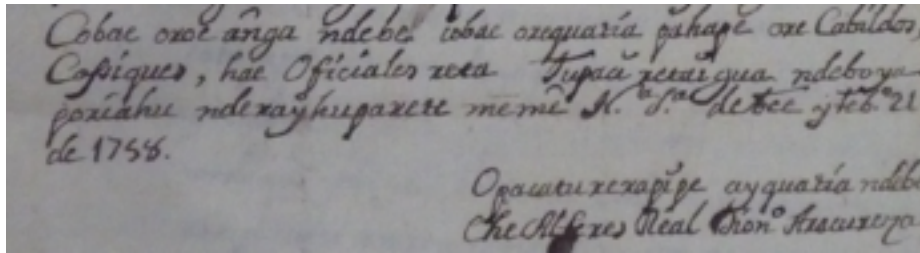 Cobae oroe ânga ndebe cobae orequatía pĭhape ore Cabildos,
Casiques, hae Oficiales reta Tupaû retaĭgua ndeboya
poriahu nderaỹhuparete memê N.ª S.ª de Fee y feb.º 21
de 1758.
Opacatu rerapĭpe ayquatía ndebe
Che Alferes Real Dion.º